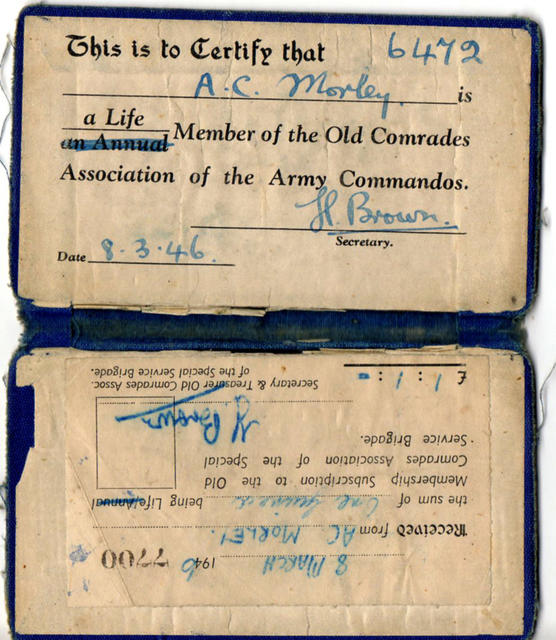 This is to Certify that 6472
A.C. Morley. is
a Life
an Annual Member of the Old Comrades
Association of the Army Commandos.
H. Brown.
Secretary.
Date 8.3.46.
7700
8 MARCH 1946
Received from AC MORLEY.
the sum of One guinea being Life/Annual
Membership Subscription to the Old
Comrades Association of the Special
Service Brigade.
H Brown
£ 1 : 1 : -
Secretary & Treasurer Old Comrades Assoc.
of the Special Service Brigade.